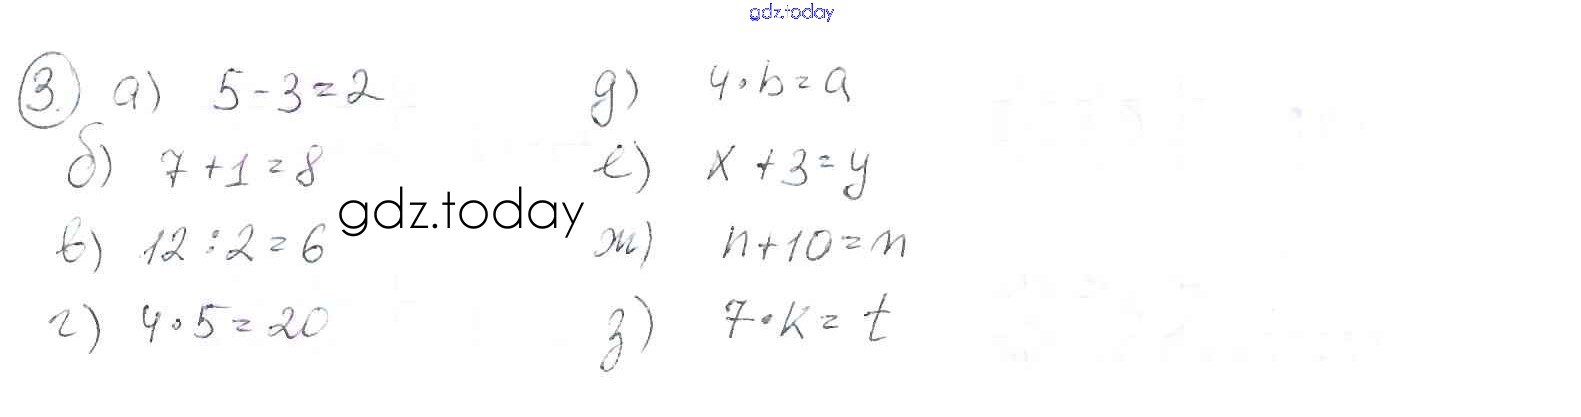 gdz.today
3. а) 5 - 3 = 2
б) 7 + 1 = 8
в) 12 : 2 = 6
г) 4 · 5 = 20
gdz.today
д) 4 · b = a
е) x + 3 = y
ж) n + 10 = m
з) 7 · k = t